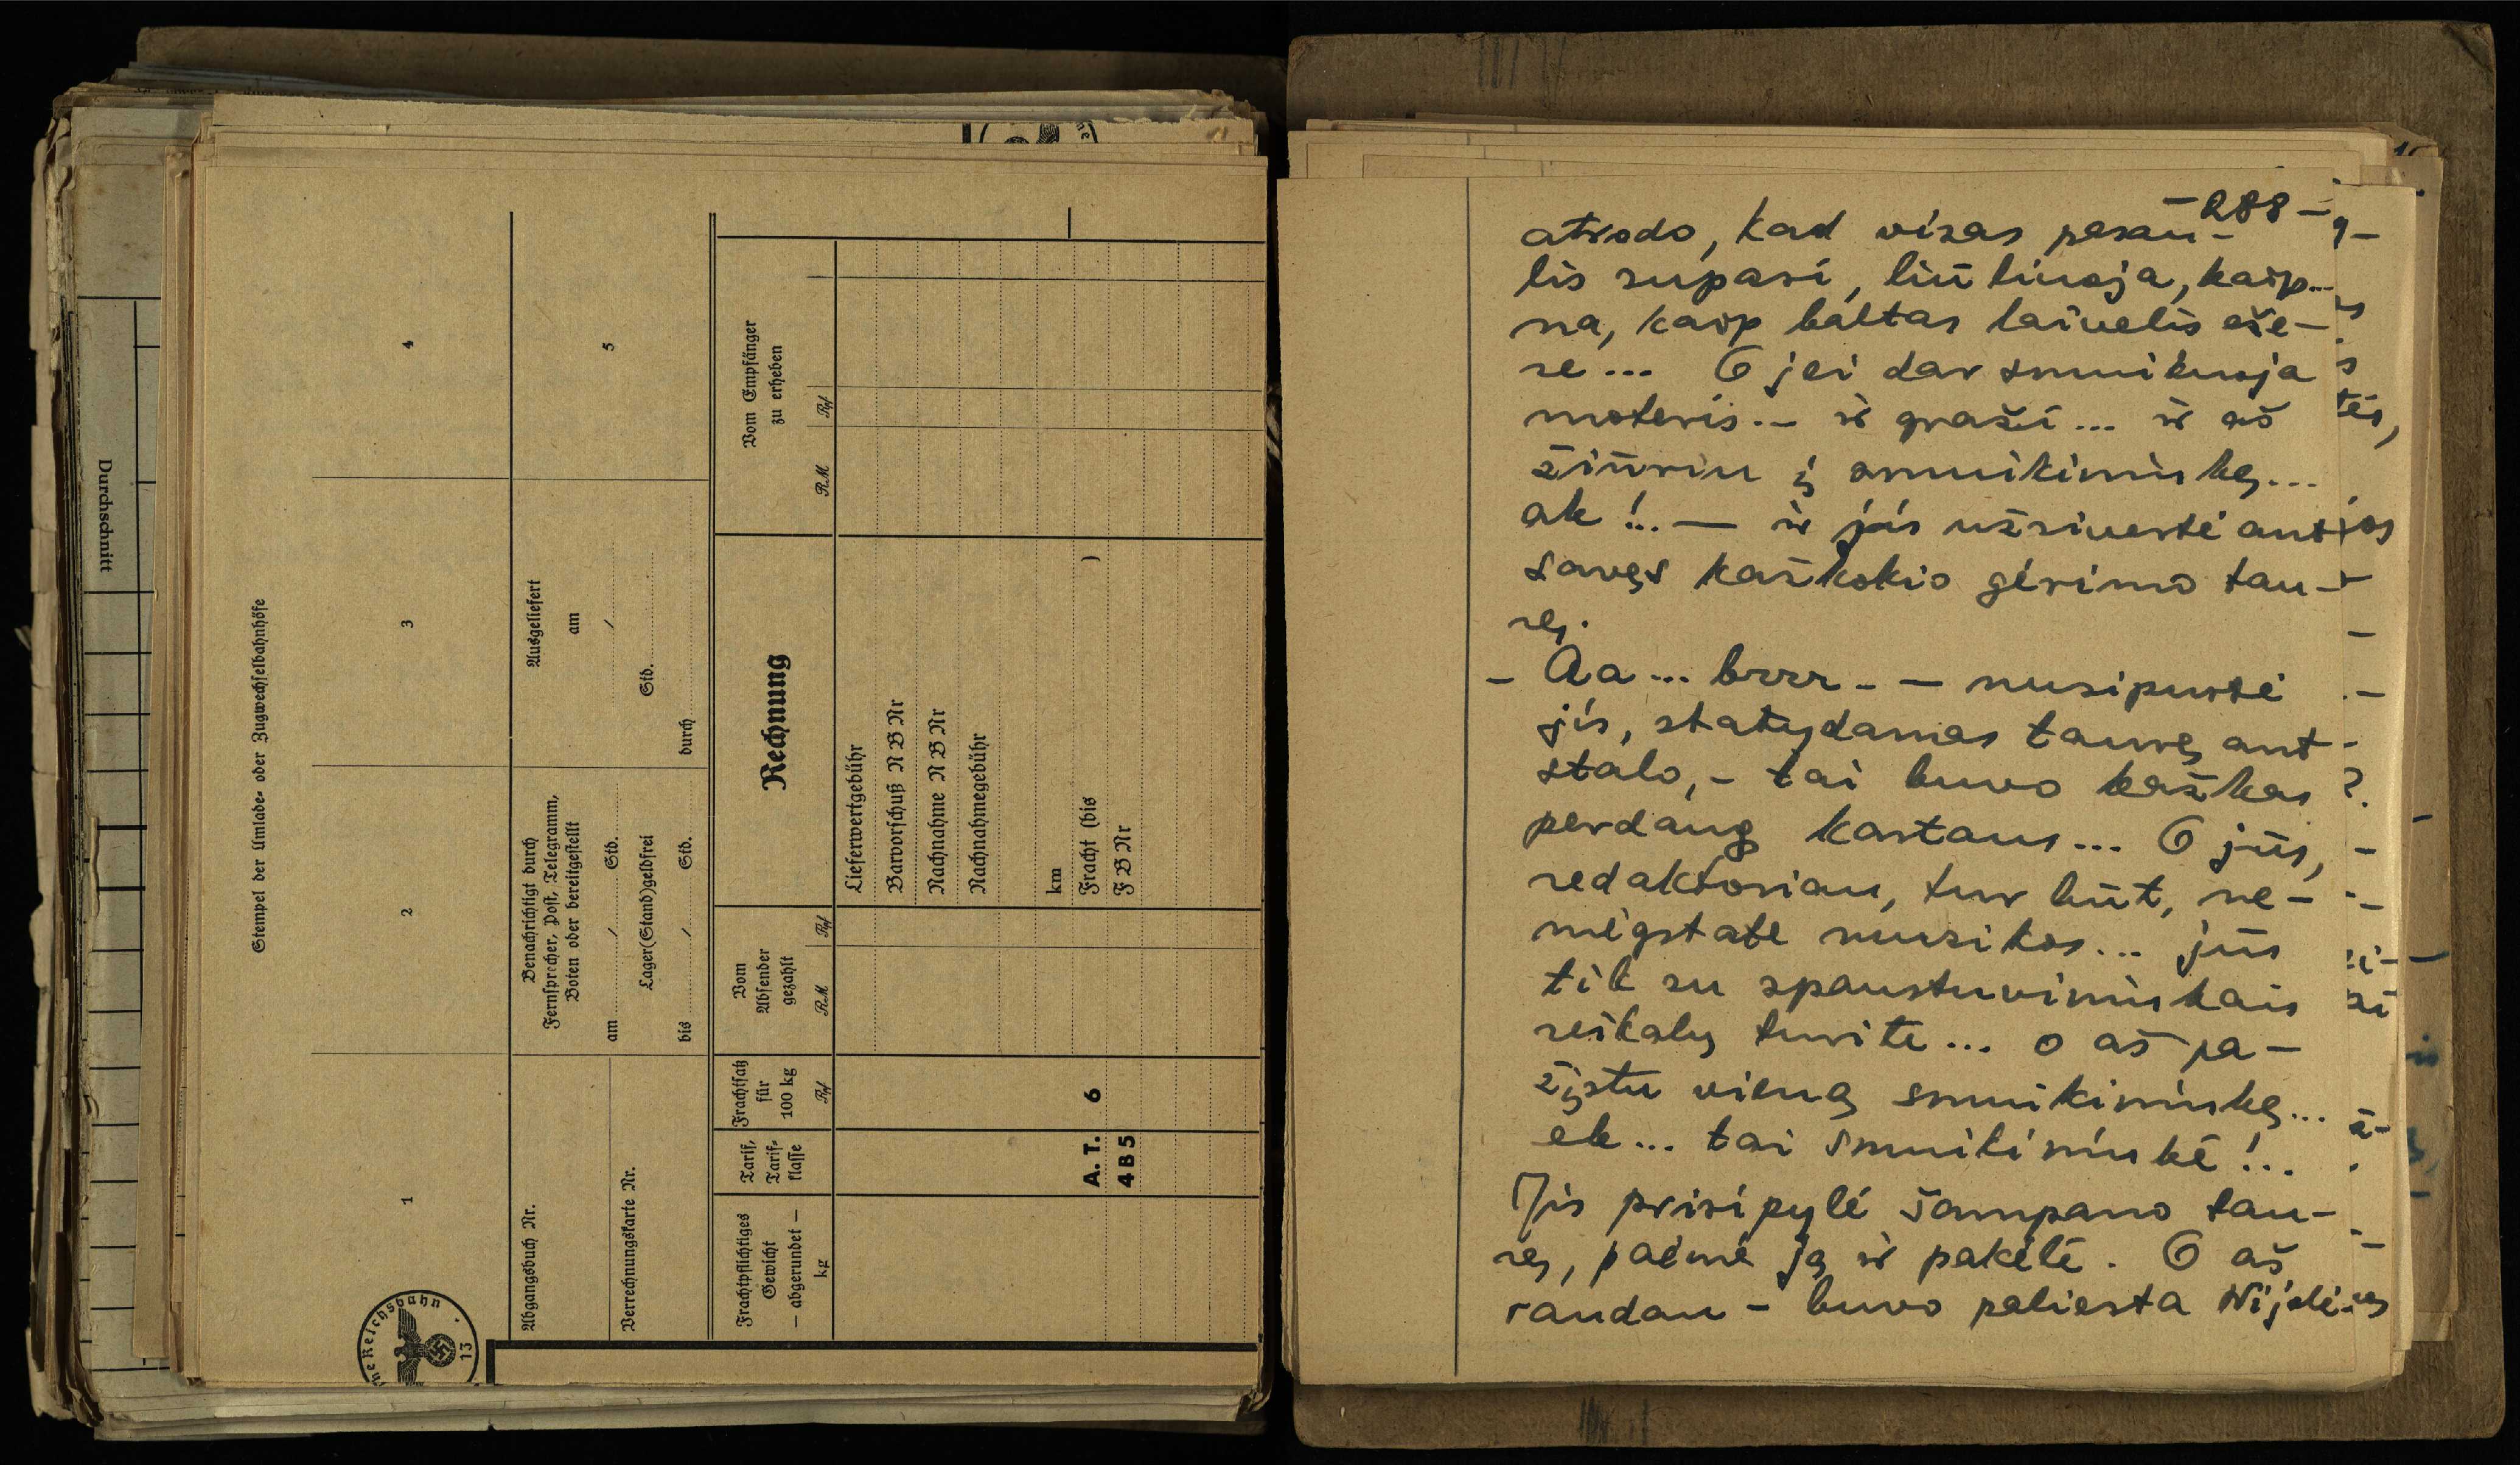 Durchschnitt
Stempel der Umlade- oder Zugwechselbahnhöfe
1
2
3
4
Abgangsbuch Nr.
Verrechnungskarte Nr.
Benachrichtigt durch
Fernsprecher, Post, Telegramm,
Boten oder bereitgestellt
am / Std.
Lager(Stand)geldfrei
bis / Std.
Ausgeliefert
am
/
Std.
durch
5
Frachtpflichtiges
Gewicht
— abgerundet —
kg
Tarif,
Tarif-
klasse
Frachtsatz
für
100 kg
Rpf
Vom
Absender
gezahlt
RM Rpf
Rechnung
Vom Empfänger
zu erheben
RM Rpf
Lieferwertgebühr
Barvorschuß N B Nr
Nachnahme N B Nr
Nachnahmegebühr
km
A. T. 6 Fracht (bis )
4 B 5 F B Nr
13
-288-
atrodo, kad visas pasau-
lis supasi, liūliuoja, kaip...
na, kaip baltas laivelis eže-
re... O jei dar smuikuoja
moteris.- ir graži... ir aš
žiūriu į smuikininkę...
ak!.. — ir jis užsivertė ant
savęs kažkokio gėrimo tau-
rę.
- Aa... brrr.. — nusipurtė
jis, statydamas taurę ant
stalo,- tai buvo kažkas
perdaug kartaus... O jūs,
redaktoriau, tur būt, ne-
mėgstate muzikos... jūs
tik su spaustuvininkais
reikalų turite... o aš pa-
žįstu vieną smuikininkę...
ek... tai smuikininkė!...
Jis prisipylė šampano tau-
rę, paėmė ją ir pakėlė. O aš
randau - buvo paliesta Nijolė